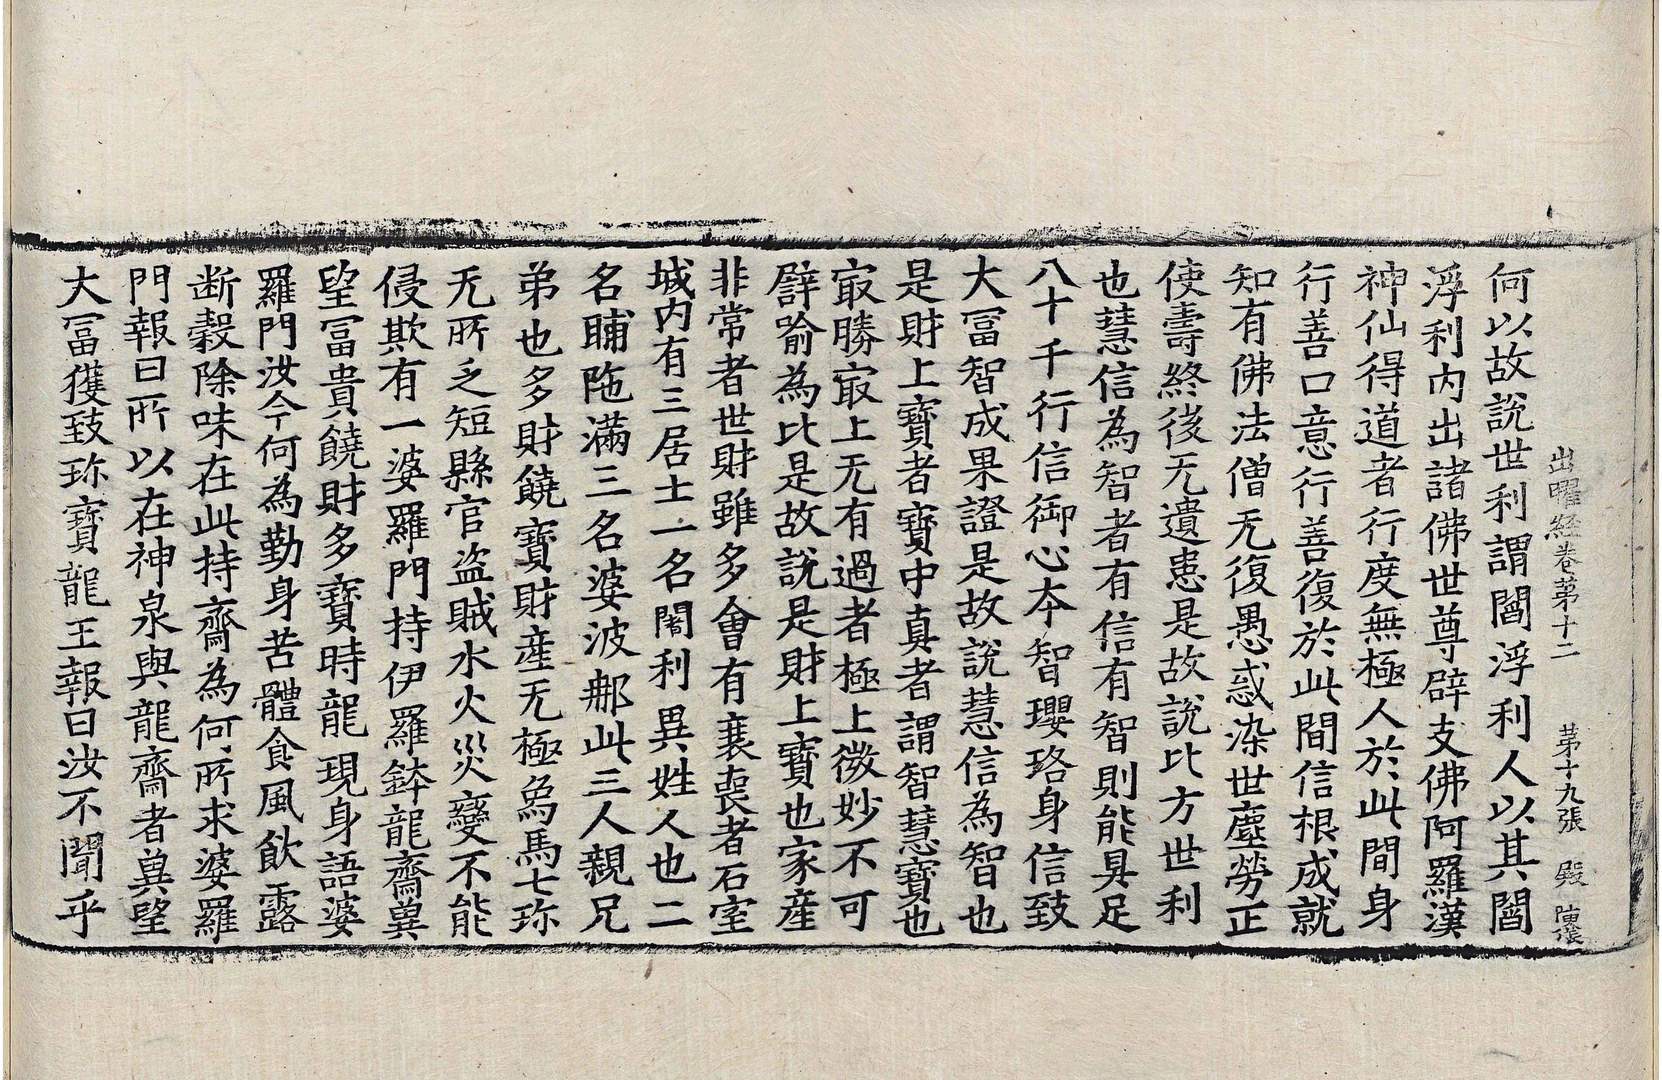 出曜經卷苐十二　苐十九張　殿　陳讓
何以故說世利謂閻浮利人以其閻
浮利內出諸佛世尊辟支佛阿羅漢
神仙得道者行度無極人於此間身
行善口意行善復於此間信根成就
知有佛法僧无復愚惑染世塵勞正
使壽終後无遺患是故說比方世利
也慧信為智者有信有智則能具足
八十千行信御心本智瓔珞身信致
大冨智成果證是故說慧信為智也
是財上寶者寶中真者謂智慧寶也
冣勝冣上无有過者極上微妙不可
譬喻為比是故說是財上寶也家產
非常者世財雖多會有衰喪者石室
城內有三居士一名闍利異姓人也二
名晡陁滿三名婆波那此三人親兄
弟也多財饒寶財產无極象馬七珎
无所乏短縣官盜賊水火災變不能
侵欺有一婆羅門持伊羅鉢龍齋兾
望冨貴饒財多寶時龍現身語婆
羅門汝今何為勤身苦體食風飲露
断穀除味在此持齋為何所求婆羅
門報曰所以在神泉與龍齋者兾望
大冨獲致珎寶龍王報曰汝不聞乎